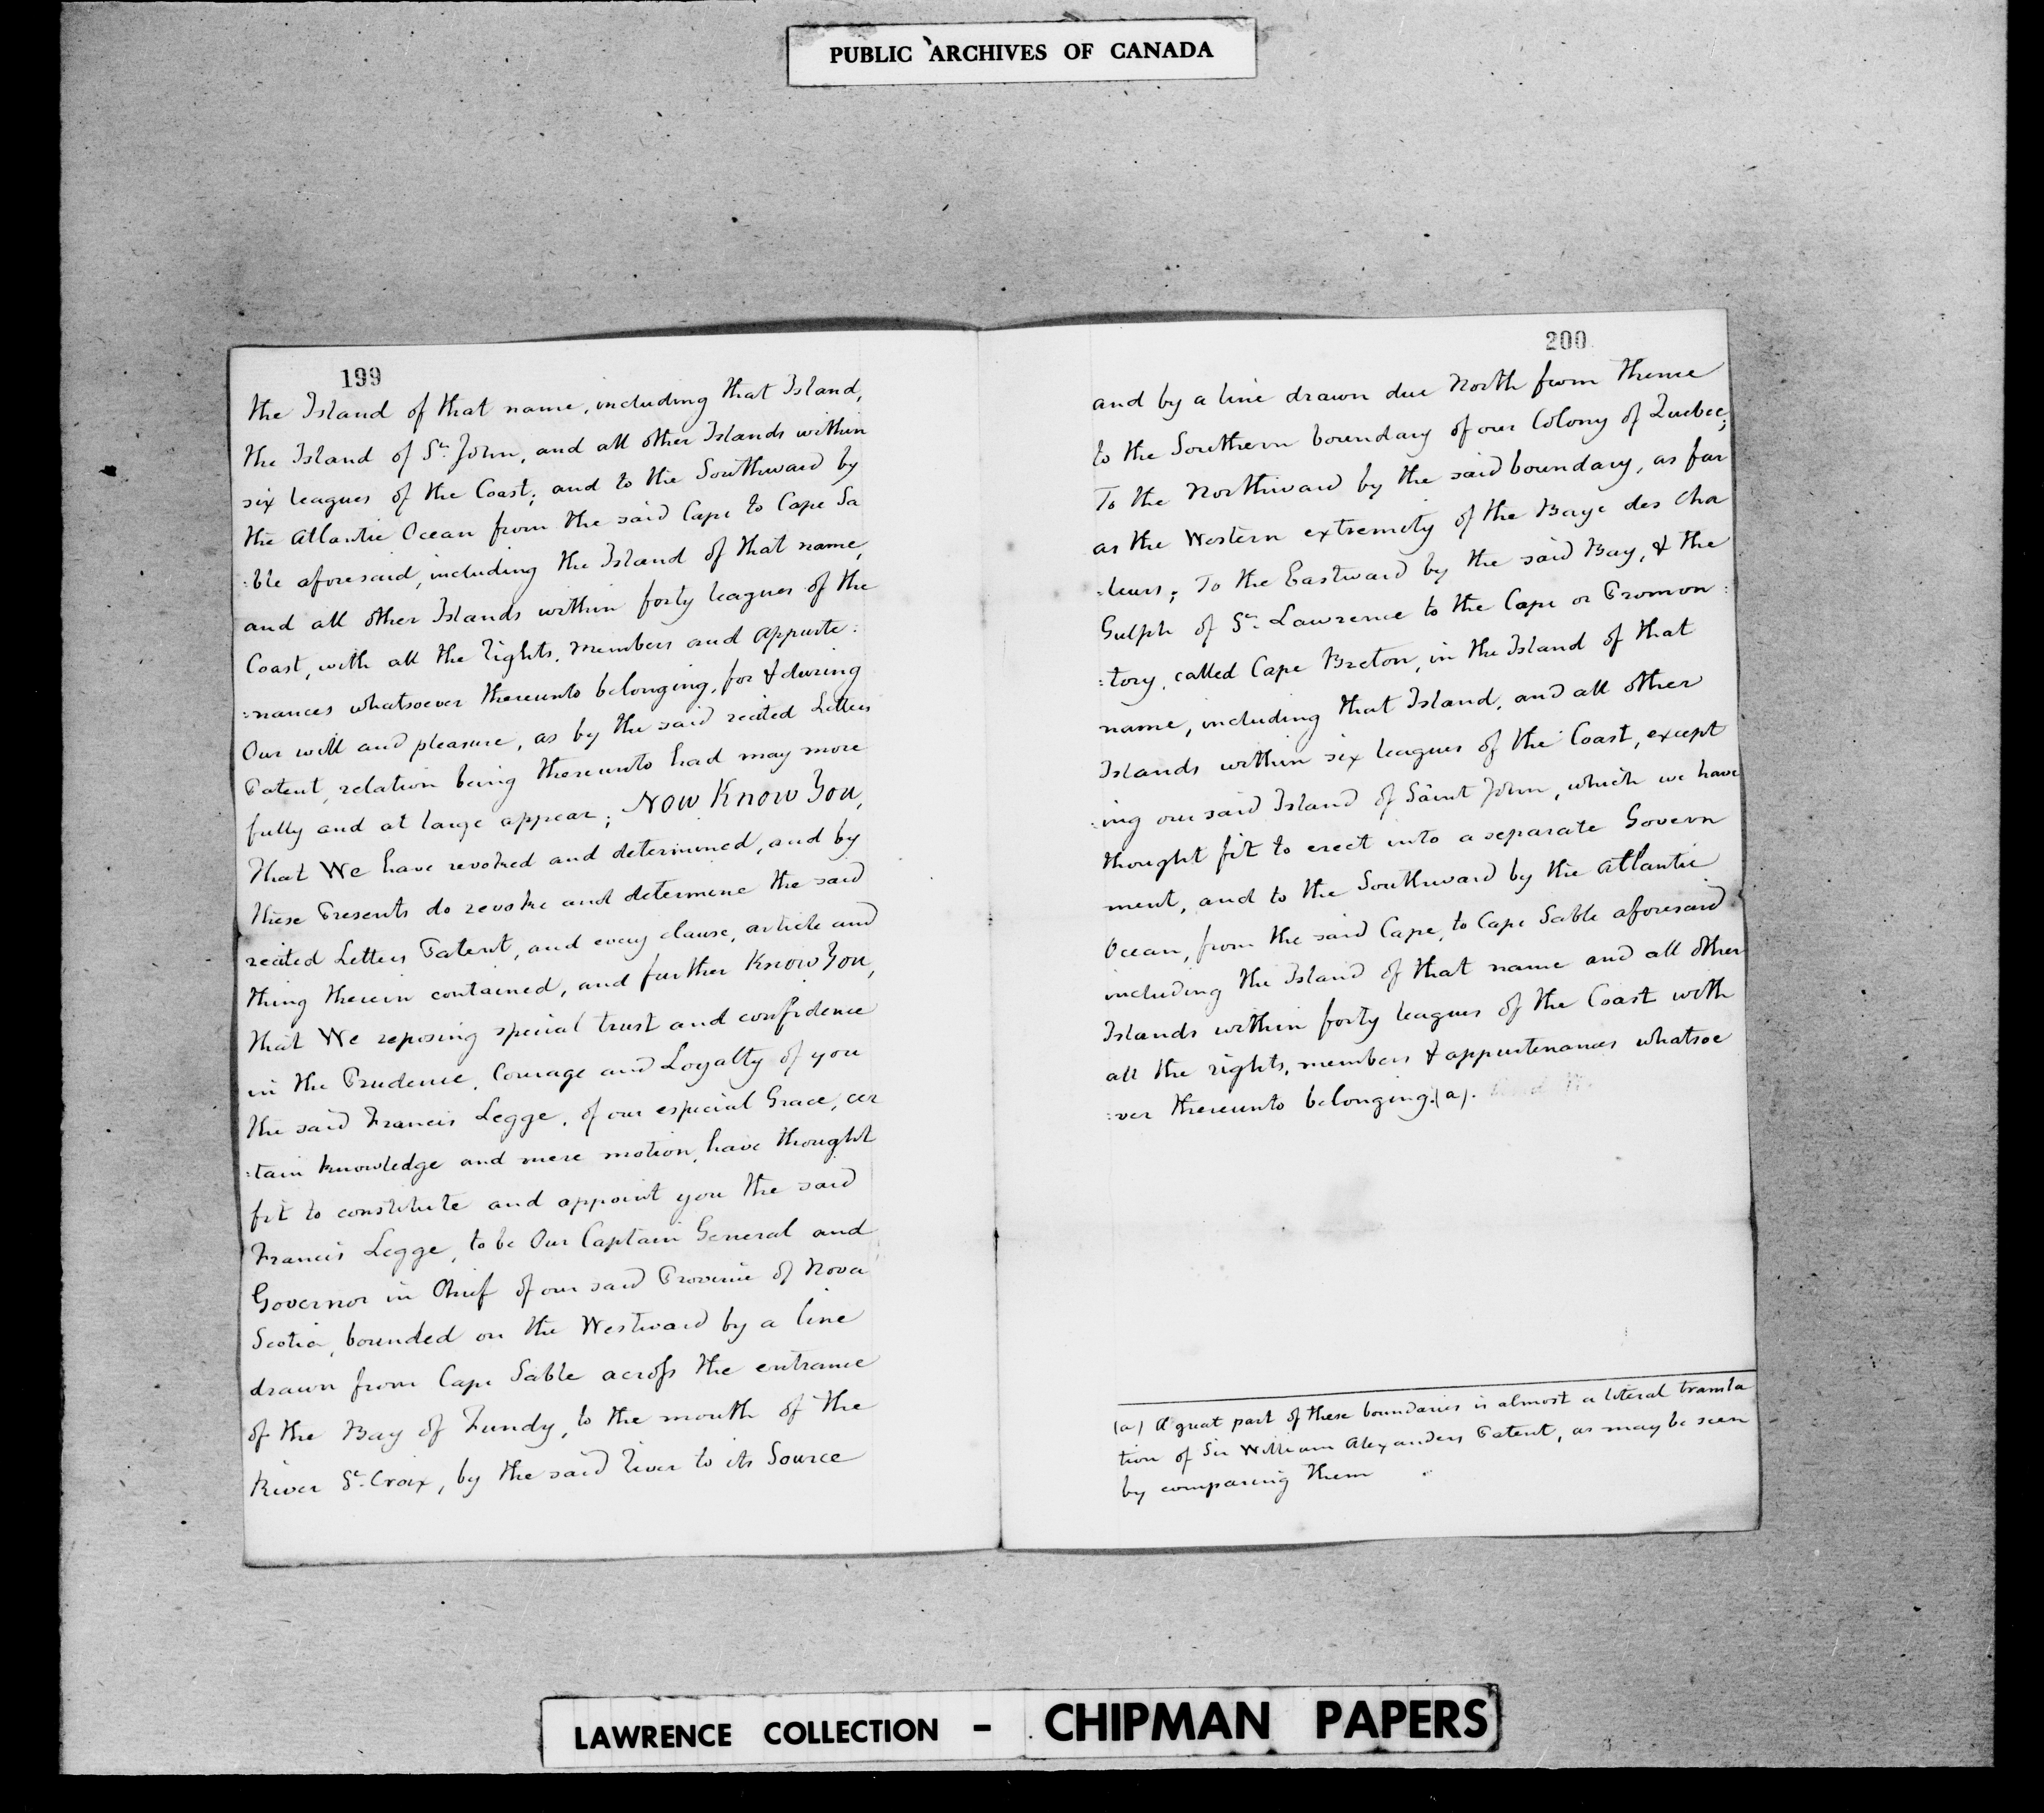 PUBLIC ARCHIVES OF CANADA
199
the Island of that name, including that Island,
the Island of St. John, and all other Islands within
six leagues of the Coast; and to the Southward by
the Atlantic Ocean from the said Cape to Cape Sa
:ble aforesaid, including the Island of that name,
and all other Islands within forty leagues of the
Coast, with all the Rights, Members and Appurte:
:nances whatsoever thereunto belonging, for & during
Our will and pleasure, as by the said recited Letters
Patent, relation being thereunto had may more
fully and at large appear; Now Know You,
that We have revoked and determined, and by
these Presents do revoke and determine the said
recited Letters Patent, and every clause, article and
thing therein contained, and further Know You,
that We reposing special trust and confidence
in the Prudence, Courage and Loyalty of you
the said Francis Legge, of our especial Grace, cer
:tain knowledge and mere motion, have thought
fit to constitute and appoint you the said
Francis Legge, to be Our Captain General and
Governor in Chief of our said Province of Nova
Scotia, bounded on the Westward by a line
drawn from Cape Sable across the entrance
of the Bay of Fundy, to the mouth of the
River St. Croix, by the said River to its Source
200
and by a line drawn due North from thence
to the Southern boundary of our Colony of Quebec;
To the Northward by the said boundary, as far
as the Western extremity of the Baye des Cha
:leurs; To the Eastward by the said Bay, & the
Gulph of St. Lawrence to the Cape or Promon:
:tory, called Cape Breton, in the Island of that
name, including that Island, and all other
Islands within six leagues of the Coast, except
:ing our said Island of Saint John, which we have
thought fit to erect into a separate Govern
ment, and to the Southward by the Atlantic
Ocean, from the said Cape, to Cape Sable aforesaid
including the Island of that name and all other
Islands within forty leagues of the Coast with
all the rights, members & appurtenances whatsoe
:ver thereunto belonging.(a).
(a) A great part of these boundaries is almost a literal transla
tion of Sir William Alexanders Patent, as may be seen
by comparing them
LAWRENCE COLLECTION - CHIPMAN PAPERS